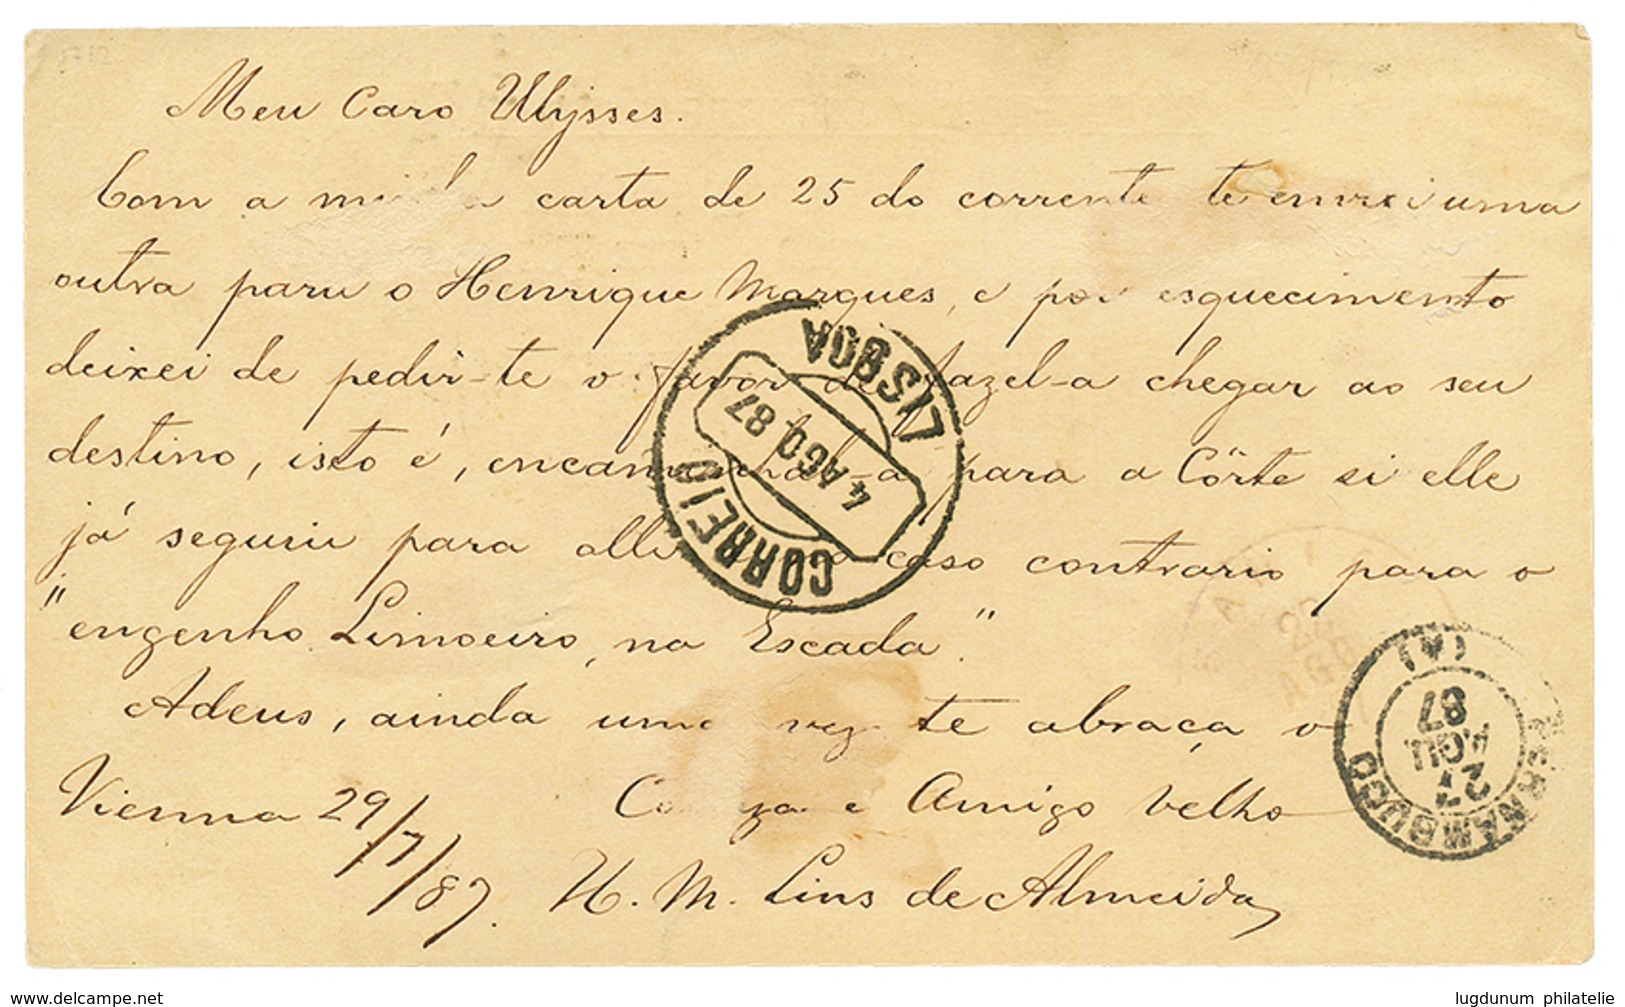 Meu Caro Ulysses.
Com a minha carta de 25 do corrente te enviei uma
outra para o Henrique Marques, e por esquecimento
deixei de pedir-te o favor de fazel-a chegar ao seu
destino, isto é, encaminhal-a para a Côrte si elle
já seguiu para alli e caso contrario para o
"engenho Limoeiro, na Escada."
Adeus, ainda uma vez te abraça o
Vienna 29/7/87. Compa e Amigo Velho
H. M. Lins de Almeida
CORREIO LISBOA
4 AGO 87
PERNAMBUCO
(A)
27
AGO
87
delcampe.net
lugdunum philatelie